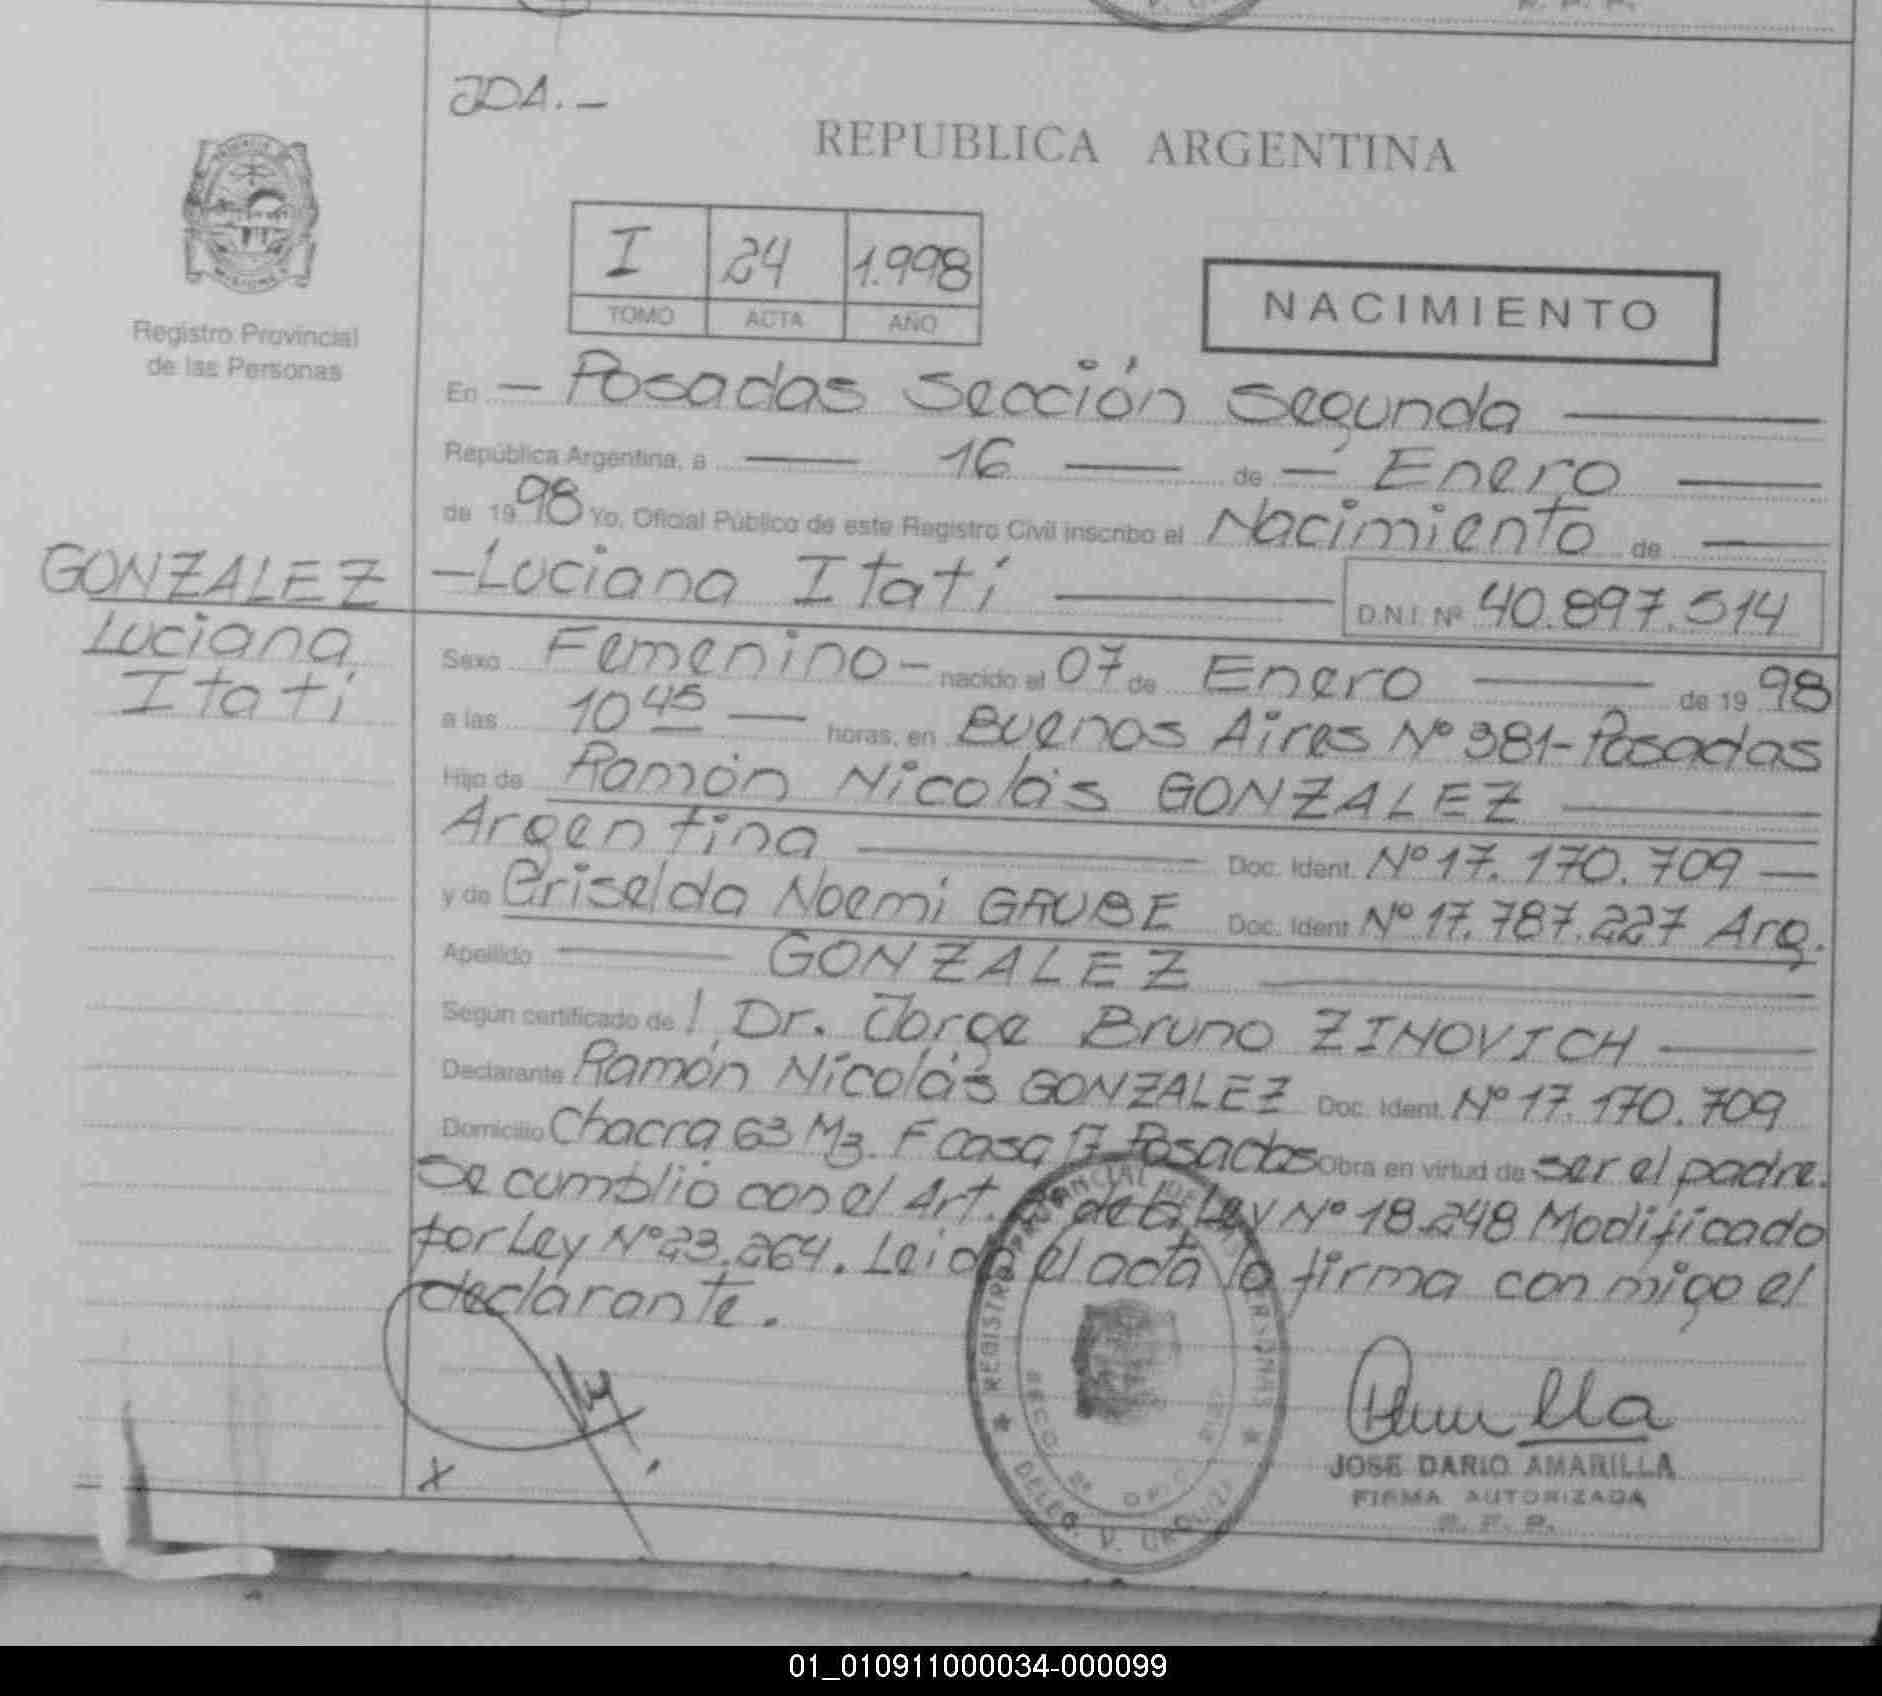 JDA.-
REPUBLICA ARGENTINA
I 24 1.998
TOMO ACTA AÑO
NACIMIENTO
Registro Provincial
de las Personas
En - Posadas Sección Segunda
República Argentina, a 16 de - Enero
de 1998 Yo, Oficial Público de este Registro Civil inscribo el Nacimiento de
GONZALEZ
Luciana
Itatí
-Luciana Itatí D.N.I. Nº 40.897.514
Sexo Femenino- nacido el 07 de Enero de 1998
a las 10 45 horas, en Buenos Aires Nº 381-Posadas
Hijo de Ramón Nicolás GONZALEZ
Argentina Doc. Ident. Nº 17.170.709
y de Griselda Noemi GRUBE Doc. Ident Nº 17.787.227 Arg.
Apellido GONZALEZ
Según certificado de Dr. Jorge Bruno ZINOVICH
Declarante Ramón Nicolás GONZALEZ Doc. Ident. Nº 17.170.709
Domicilio Chacra 63 Mz. F casa 17 Posadas Obra en virtud de ser el padre.
Se cumplió con el Art. de la Ley Nº 18.248 Modificado
por Ley Nº 23.264. Leida el acta la firma con migo el
declarante.
X
REGISTRO PROVINCIAL DE LAS PERSONAS
DELEG. V. URQUIZA
JOSE DARIO AMARILLA
FIRMA AUTORIZADA
R. P. P.
01_010911000034-000099